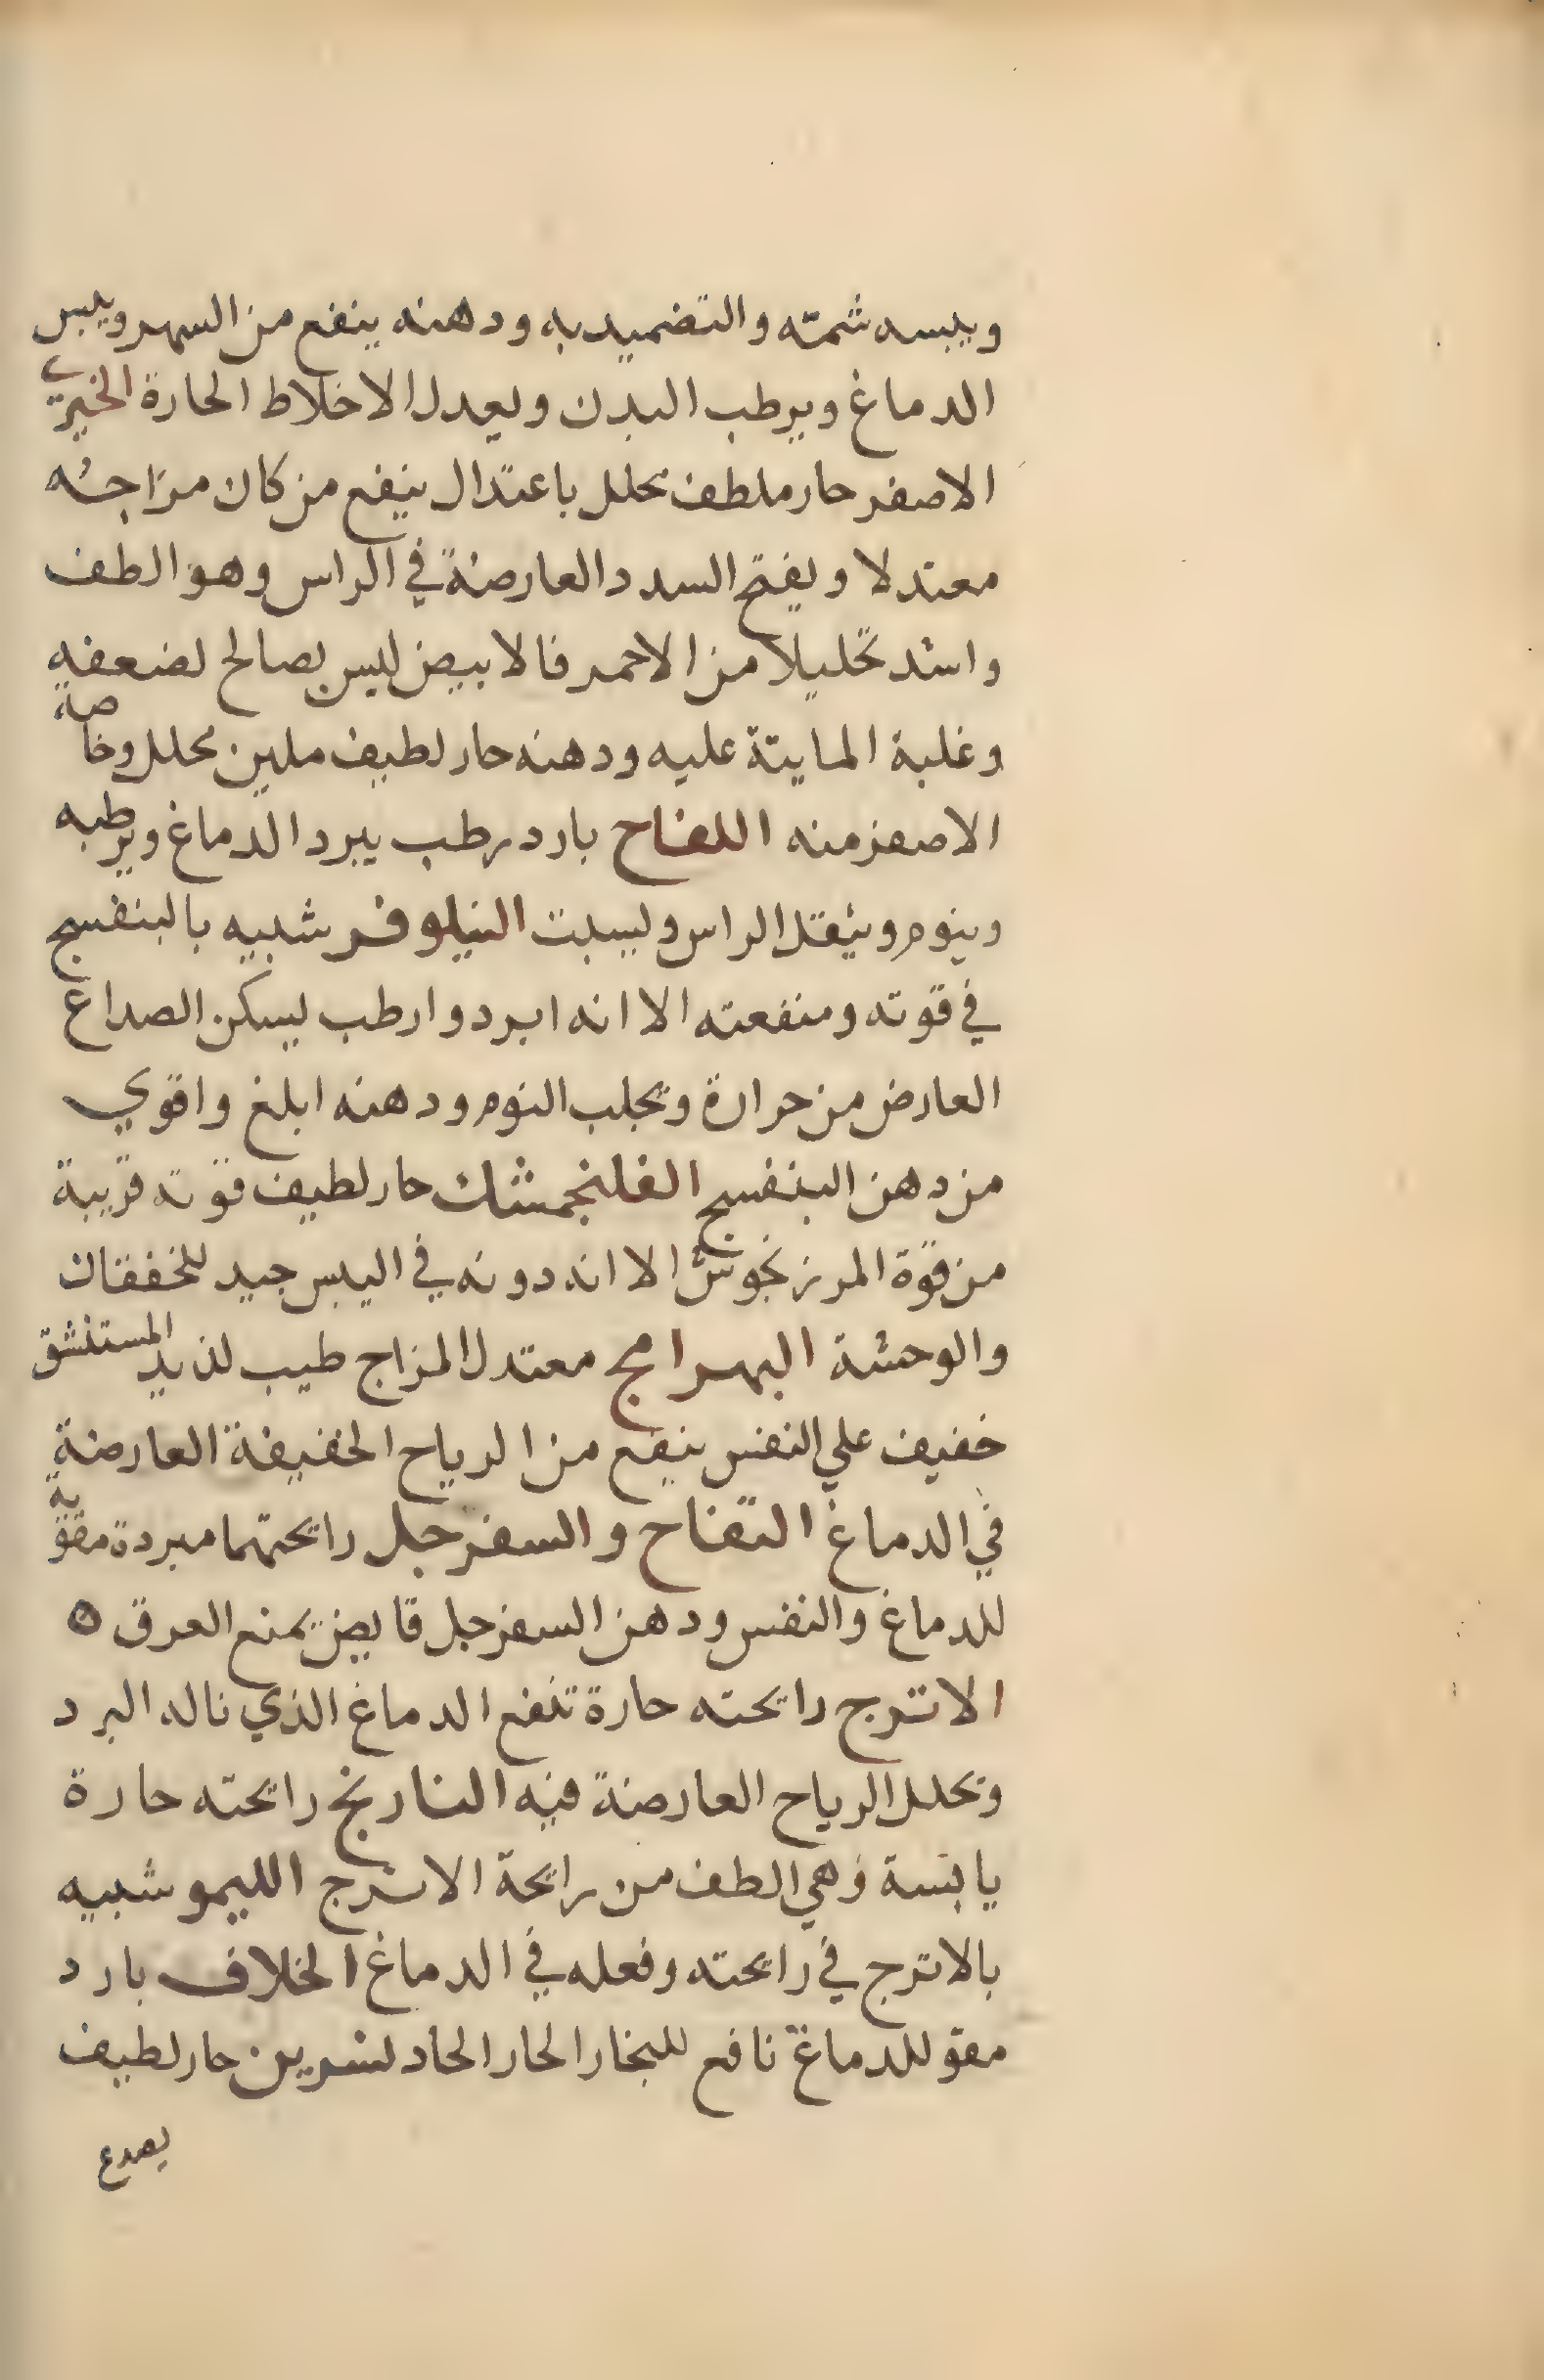 ويبسه شمته والتضميد به ودهنه ينفع من السهر ويبس
الدماغ ويرطب البدن ويعدل الاخلاط الحارة الخيري
الاصفر حار ملطف محلل باعتدال ينفع من كان مزاجه
معتدلا ويفتح السدد العارضة في الراس وهو الطف
واشد تحليلا من الاحمر فالابيض ليس بصالح لضعفه
وغلبة المايتة عليه ودهنه حار لطيف ملين محلل وخاصة
الاصفر منه اللفاح بارد رطب يبرد الدماغ ويرطبه
وينوم ويثقل الراس ويسبت النيلوفر شبيه بالبنفسج
في قوته ومنفعته الا انه ابرد وارطب يسكن الصداع
العارض من حرارة ويجلب النوم ودهنه ابلغ واقوي
من دهن البنفسج الفلنجمشك حار لطيف قوته قريبة
من قوة المرزنجوش الا انه دونه في اليبس جيد للخفقان
والوحشة البهرامج معتدل المزاج طيب لذيذ المستنشق
خفيف علي النفس ينفع من الرياح الخفيفة العارضة
في الدماغ التفاح والسفرجل رايحتهما مبردة مقوية
للدماغ والنفس ودهن السفرجل قابض يمنع العرق ه
الاترج رايحته حارة تنفع الدماغ الذي ناله البرد
وتحلل الرياح العارضة فيه النارنج رايحته حارة
يابسة وهي الطف من رايحة الاترج الليمو شبيه
بالاترج في رايحته وفعله في الدماغ الخلاف بارد
مقو للدماغ نافع للبخار الحار الحاد نسرين حار لطيف
يصدع